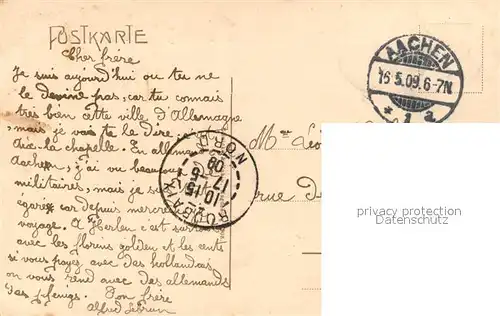 POSTKARTE
Cher frère
Je suis aujourd'hui ou tu ne
le devine pas, car tu connais
très bien cette ville d'Allemagne
mais je vas te le dire
Aix-la-chapelle. En allemand
Aachen, j'ai vu beaucoup
militaires, mais je
car depuis mercredi
voyage. A c'est
avec les florins golden et les cents
si vous payez avec des hollandais
on vous rend avec des allemands
des pfenigs. Ton frère
Alfred
AACHEN
16.5.09.6-7N.
1 a
ROUBAIX
10 15
17 - 5
09
NORD
Mme
rue
privacy protection
datenschutz